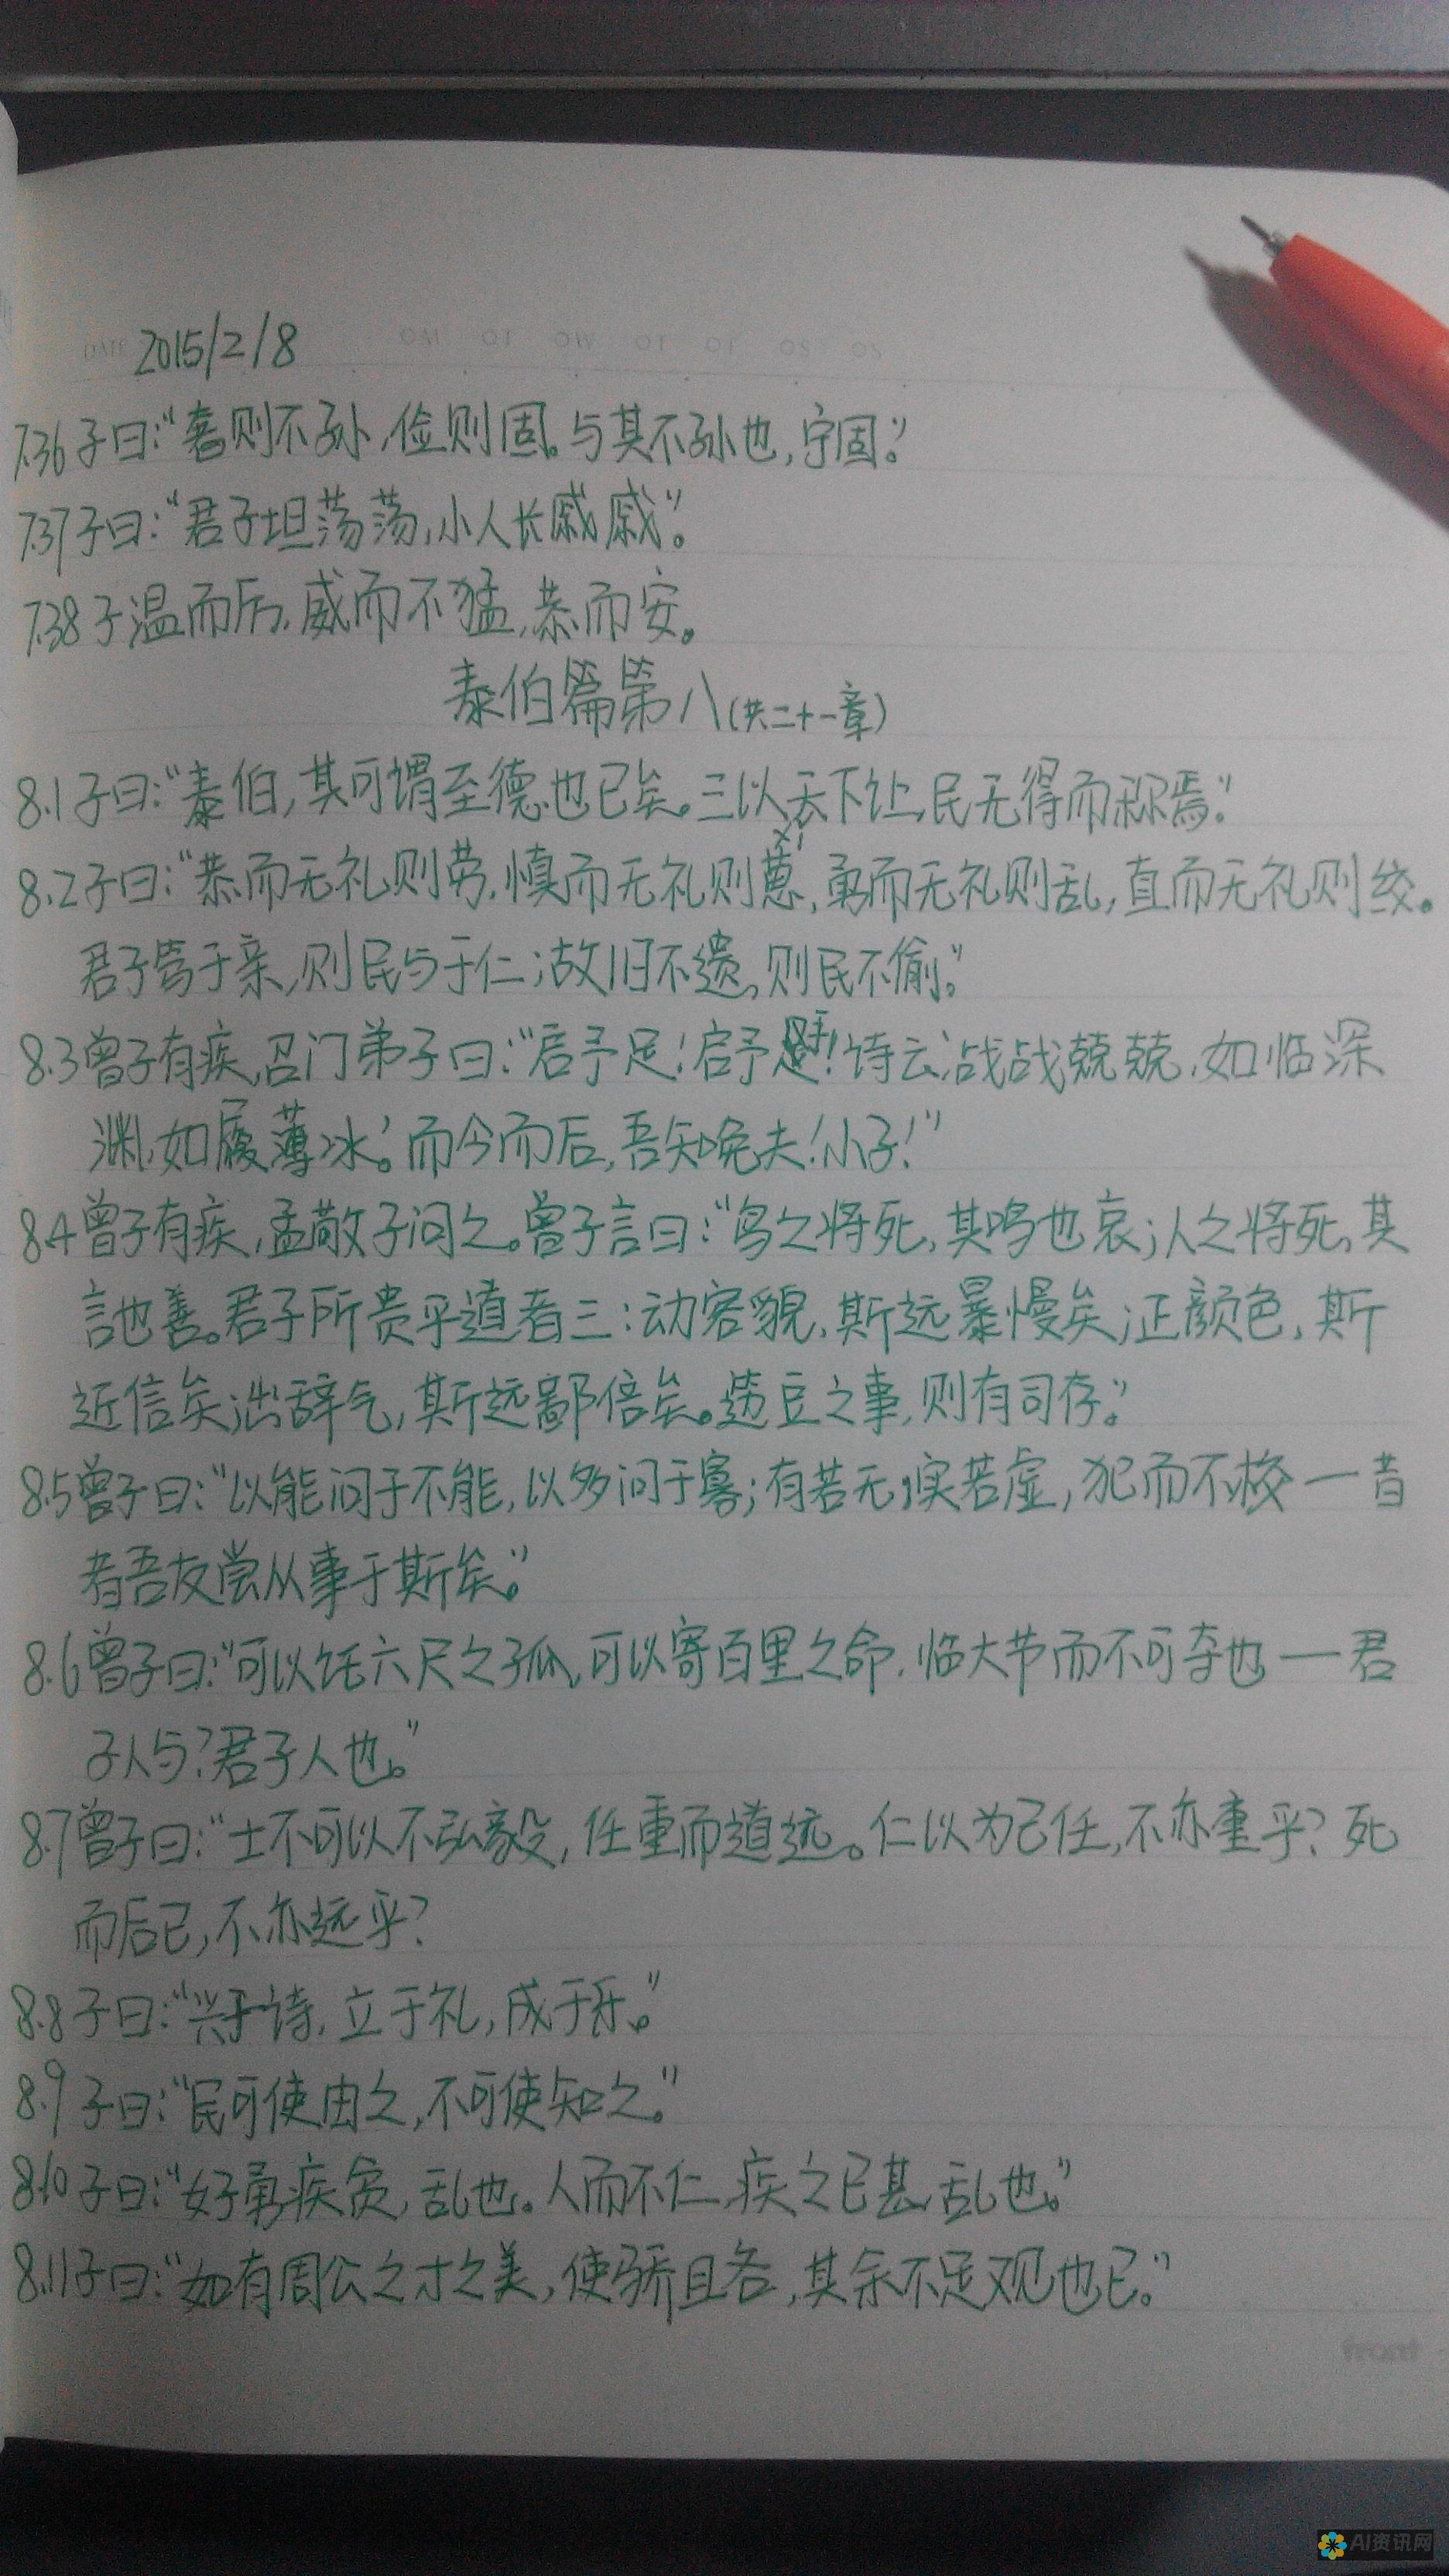 DATE 2015/2/8
7.36 子曰:“奢则不孙,俭则固。与其不孙也,宁固。”
7.37 子曰:“君子坦荡荡,小人长戚戚”。
7.38 子温而厉,威而不猛,恭而安。
泰伯篇第八(共二十一章)
8.1 子曰:“泰伯,其可谓至德也已矣。三以天下让,民无得而称焉。”
xǐ
8.2 子曰:“恭而无礼则劳,慎而无礼则葸,勇而无礼则乱,直而无礼则绞。
君子笃于亲,则民兴于仁;故旧不遗,则民不偷。”
8.3 曾子有疾,召门弟子曰:“启予足!启予手!诗云‘战战兢兢,如临深
渊,如履薄冰。’而今而后,吾知免夫!小子!”
8.4 曾子有疾,孟敬子问之。曾子言曰:“鸟之将死,其鸣也哀;人之将死,其
言也善。君子所贵乎道者三:动容貌,斯远暴慢矣;正颜色,斯
近信矣;出辞气,其斯远鄙倍矣。笾豆之事,则有司存。”
8.5 曾子曰:“以能问于不能,以多问于寡;有若无,实若虚,犯而不校—昔
者吾友尝从事于斯矣。”
8.6 曾子曰:“可以托六尺之孤,可以寄百里之命,临大节而不可夺也—君
子人与?君子人也。”
8.7 曾子曰:“士不可以不弘毅,任重而道远。仁以为己任,不亦重乎?死
而后已,不亦远乎?
8.8 子曰:“兴于诗,立于礼,成于乐。”
8.9 子曰:“民可使由之,不可使知之。”
8.10 子曰:“好勇疾贫,乱也。人而不仁,疾之已甚,乱也。”
8.11 子曰:“如有周公之才之美,使骄且吝,其余不足观也已。”
front
AI资讯网